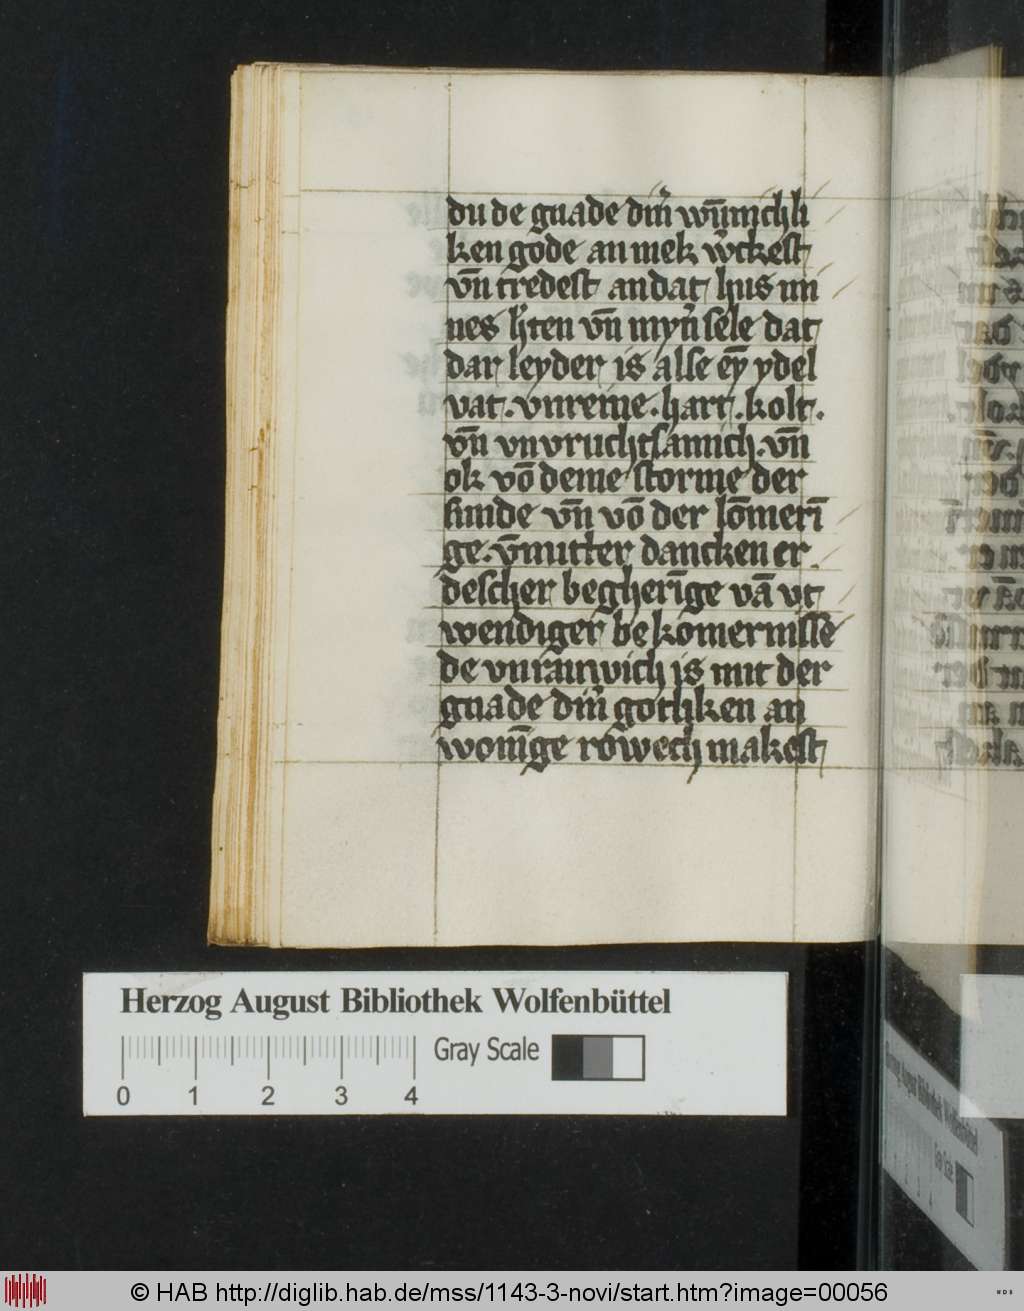 du de gnade din̄ wūnichli
ken gode an mek w̄ckest
vn̄ tredest an dat hus mi
nes h̄ten vn̄ myn̄ sele dat
dar leyder is alse ey̅ ydel
vat. vnreine. hart. kolt.
vn̄ vnvruchtsamich. vn̄
ok vō deme storme der
sunde vn̄ vō der lōmerī
ge. v̄mitter dancken er
descher begherīge vā vt
wendiger bekomernisse
de vnrauwich is mit der
gnade din̄ gotliken an
wonīge rowech makest
Herzog August Bibliothek Wolfenbüttel
0 1 2 3 4
Gray Scale
© HAB http://diglib.hab.de/mss/1143-3-novi/start.htm?image=00056